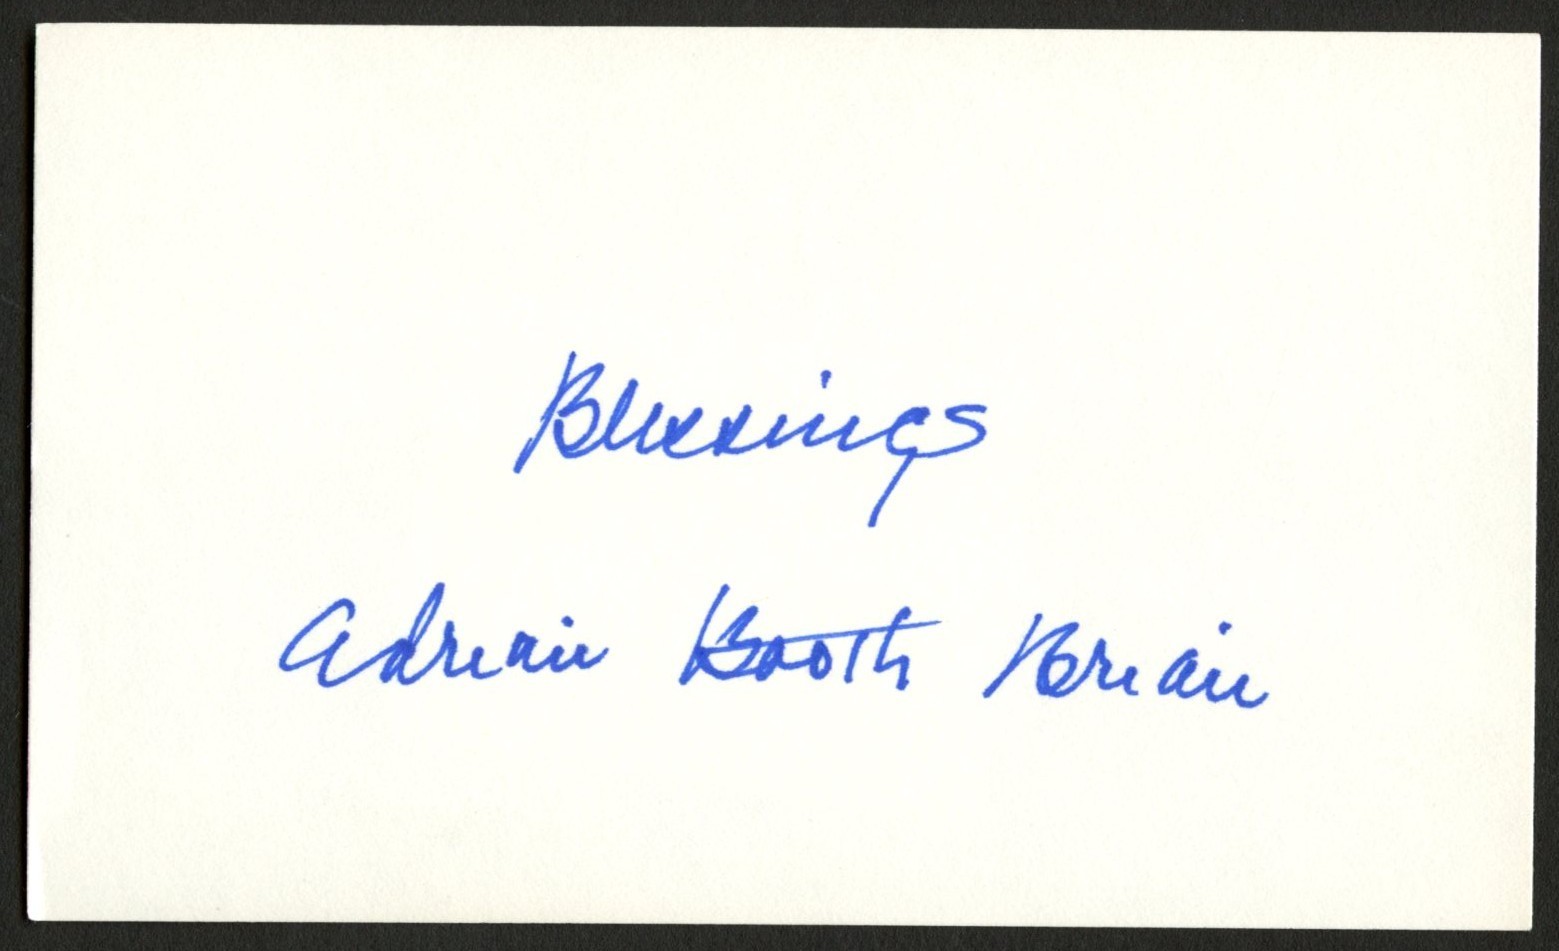 Blessings
Adrian Booth Brian